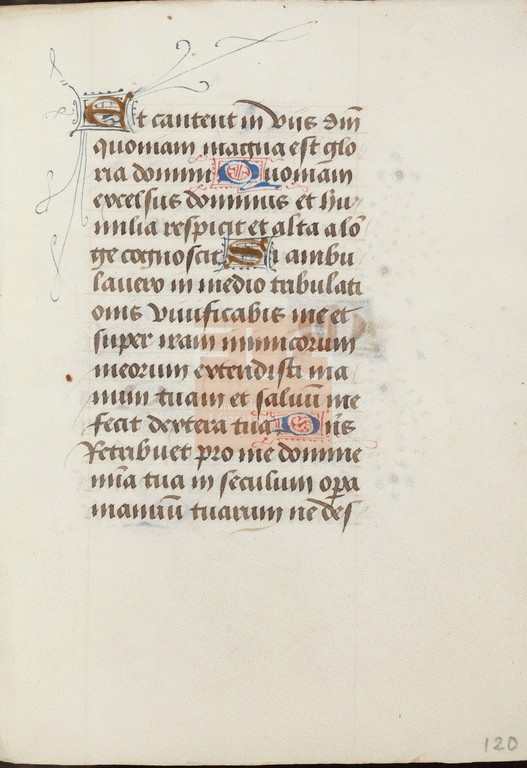 Et cantent in viis dñi
quoniam magna est glo
ria domini Quoniam
excelsus dominus et hu
milia respicit et alta a lō
ge cognoscit Si ambu
lavero in medio tribulati
onis vivificabis me et
super iram inimicorum
meorum extendisti ma
num tuam et saluū me
fecit dextera tua Dñs
Retribuet pro me domine
mīa tua in seculum opa
manuū tuarum ne des
120